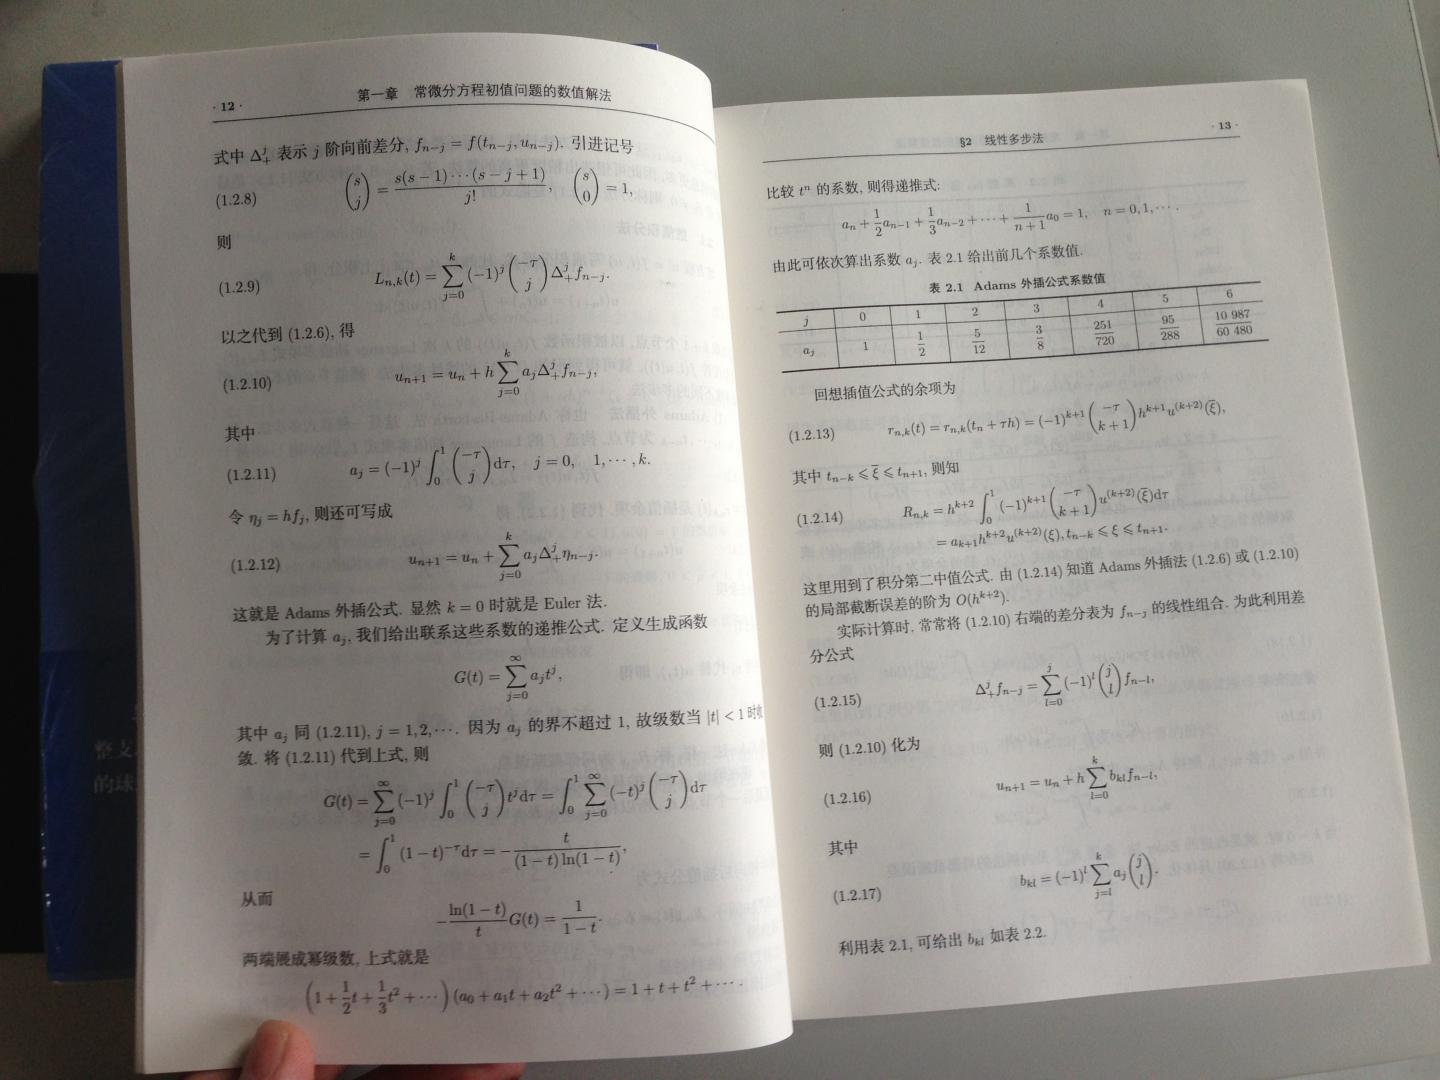 · 12 ·
第一章 常微分方程初值问题的数值解法
式中 Δ₊ʲ 表示 j 阶向前差分, fₙ₋ⱼ = f(tₙ₋ⱼ, uₙ₋ⱼ). 引进记号
(1.2.8) \binom{s}{j} = \frac{s(s-1)\cdots(s-j+1)}{j!}, \binom{s}{0} = 1,
则
(1.2.9) L_{n,k}(t) = \sum_{j=0}^{k} (-1)^j \binom{-τ}{j} Δ_+^j f_{n-j}.
以之代到 (1.2.6), 得
(1.2.10) u_{n+1} = u_n + h \sum_{j=0}^{k} a_j Δ_+^j f_{n-j},
其中
(1.2.11) a_j = (-1)^j \int_0^1 \binom{-τ}{j} dτ, j = 0, 1, ···, k.
令 η_j = hf_j, 则还可写成
(1.2.12) u_{n+1} = u_n + \sum_{j=0}^{k} a_j Δ_+^j η_{n-j}.
这就是 Adams 外插公式. 显然 k = 0 时就是 Euler 法.
为了计算 a_j, 我们给出联系这些系数的递推公式. 定义生成函数
G(t) = \sum_{j=0}^{∞} a_j t^j,
其中 a_j 同 (1.2.11), j = 1, 2, ···. 因为 a_j 的界不超过 1, 故级数当 |t| < 1 时收
敛. 将 (1.2.11) 代到上式, 则
G(t) = \sum_{j=0}^{∞} (-1)^j \int_0^1 \binom{-τ}{j} t^j dτ = \int_0^1 \sum_{j=0}^{∞} (-t)^j \binom{-τ}{j} dτ
= \int_0^1 (1-t)^{-τ} dτ = -\frac{t}{(1-t)\ln(1-t)},
从而
-\frac{\ln(1-t)}{t} G(t) = \frac{1}{1-t}.
两端展成幂级数, 上式就是
(1 + \frac{1}{2}t + \frac{1}{3}t^2 + ···)(a_0 + a_1 t + a_2 t^2 + ···) = 1 + t + t^2 + ···.
§2 线性多步法
· 13 ·
比较 tⁿ 的系数, 则得递推式:
a_n + \frac{1}{2}a_{n-1} + \frac{1}{3}a_{n-2} + ··· + \frac{1}{n+1}a_0 = 1, n = 0, 1, ···.
由此可依次算出系数 a_j. 表 2.1 给出前几个系数值.
表 2.1 Adams 外插公式系数值
j 0 1 2 3 4 5 6
a_j 1 \frac{1}{2} \frac{5}{12} \frac{3}{8} \frac{251}{720} \frac{95}{288} \frac{10 987}{60 480}
回想插值公式的余项为
(1.2.13) r_{n,k}(t) = r_{n,k}(t_n + τh) = (-1)^{k+1} \binom{-τ}{k+1} h^{k+1} u^{(k+2)}(\bar{ξ}),
其中 t_{n-k} ⩽ \bar{ξ} ⩽ t_{n+1}, 则知
(1.2.14) R_{n,k} = h^{k+2} \int_0^1 (-1)^{k+1} \binom{-τ}{k+1} u^{(k+2)}(\bar{ξ}) dτ
= a_{k+1} h^{k+2} u^{(k+2)}(ξ), t_{n-k} ⩽ ξ ⩽ t_{n+1}.
这里用到了积分第二中值公式. 由 (1.2.14) 知道 Adams 外插法 (1.2.6) 或 (1.2.10)
的局部截断误差的阶为 O(h^{k+2}).
实际计算时, 常常将 (1.2.10) 右端的差分表为 f_{n-j} 的线性组合. 为此利用差
分公式
(1.2.15) Δ_+^j f_{n-j} = \sum_{l=0}^{j} (-1)^l \binom{j}{l} f_{n-l},
则 (1.2.10) 化为
(1.2.16) u_{n+1} = u_n + h \sum_{l=0}^{k} b_{kl} f_{n-l},
其中
(1.2.17) b_{kl} = (-1)^l \sum_{j=l}^{k} a_j \binom{j}{l}.
利用表 2.1, 可给出 b_{kl} 如表 2.2.
整支
的球